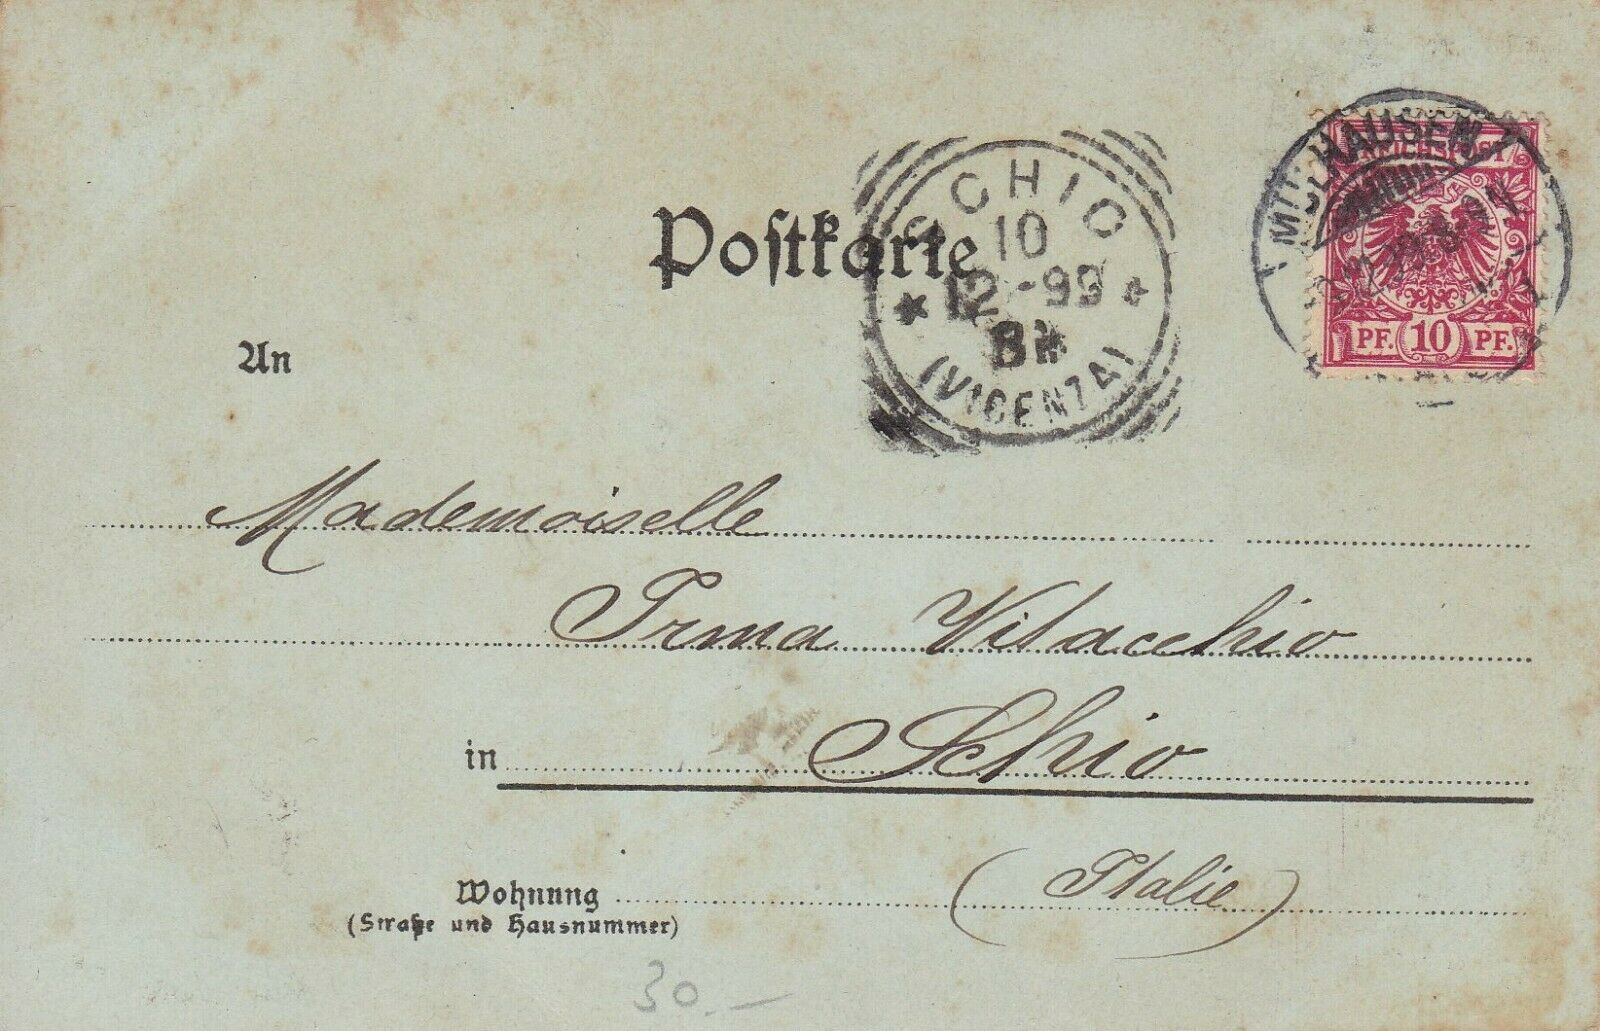 MÜLHAUSEN
REICHSPOST
PF. 10 PF.
SCHIO
10
12-99
(VICENZA)
Postkarte
An
Mademoiselle
Irma Vitacchio
in Schio
Wohnung (Italie)
(Straße und Hausnummer)
30.—